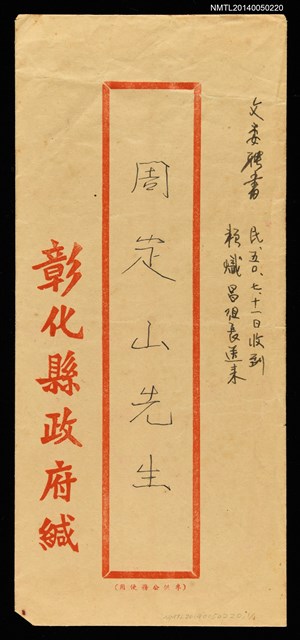 NMTL20140050220
文委聘書
民、五〇、七、十一日收到
賴熾昌組長送來
周定山先生
彰化縣政府緘
(專供公務使用)